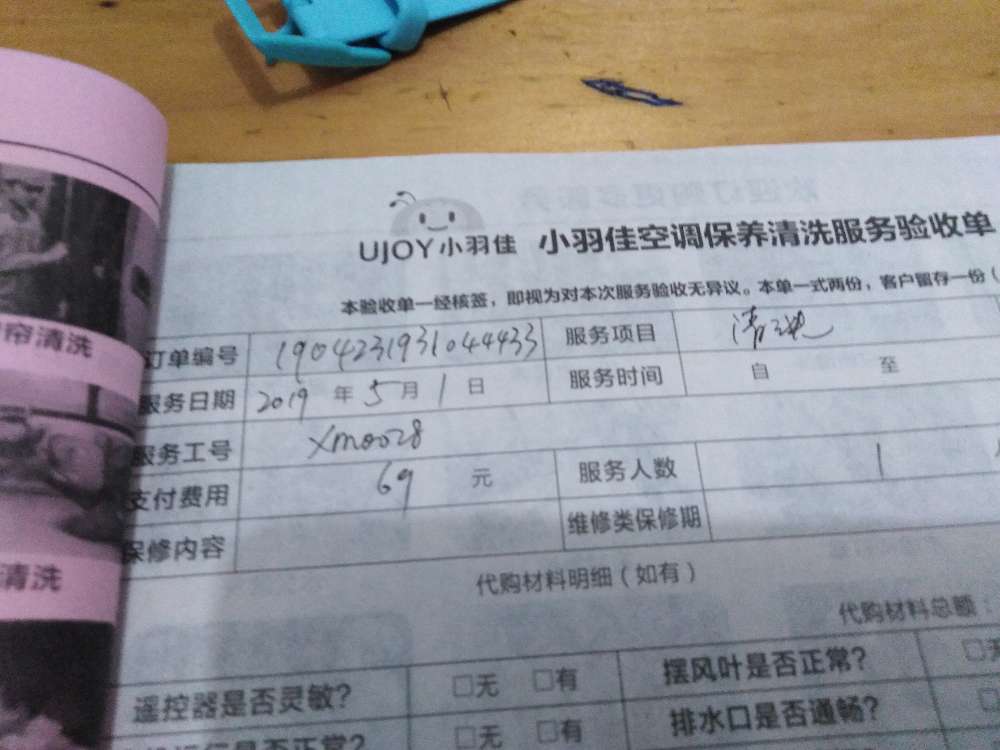 UJOY小羽佳 小羽佳空调保养清洗服务验收单
本验收单一经核签，即视为对本次服务验收无异议。本单一式两份，客户留存一份（
订单编号 1904231931044433 服务项目 清洗
服务日期 2019 年 5 月 1 日 服务时间 自 至
服务工号 Xm0028
支付费用 69 元 服务人数 1
保修内容 维修类保修期
代购材料明细（如有）
代购材料总额：
遥控器是否灵敏？ □无 □有 摆风叶是否正常？ □无
运行是否正常？ □无 □有 排水口是否通畅？ □
帘清洗
清洗